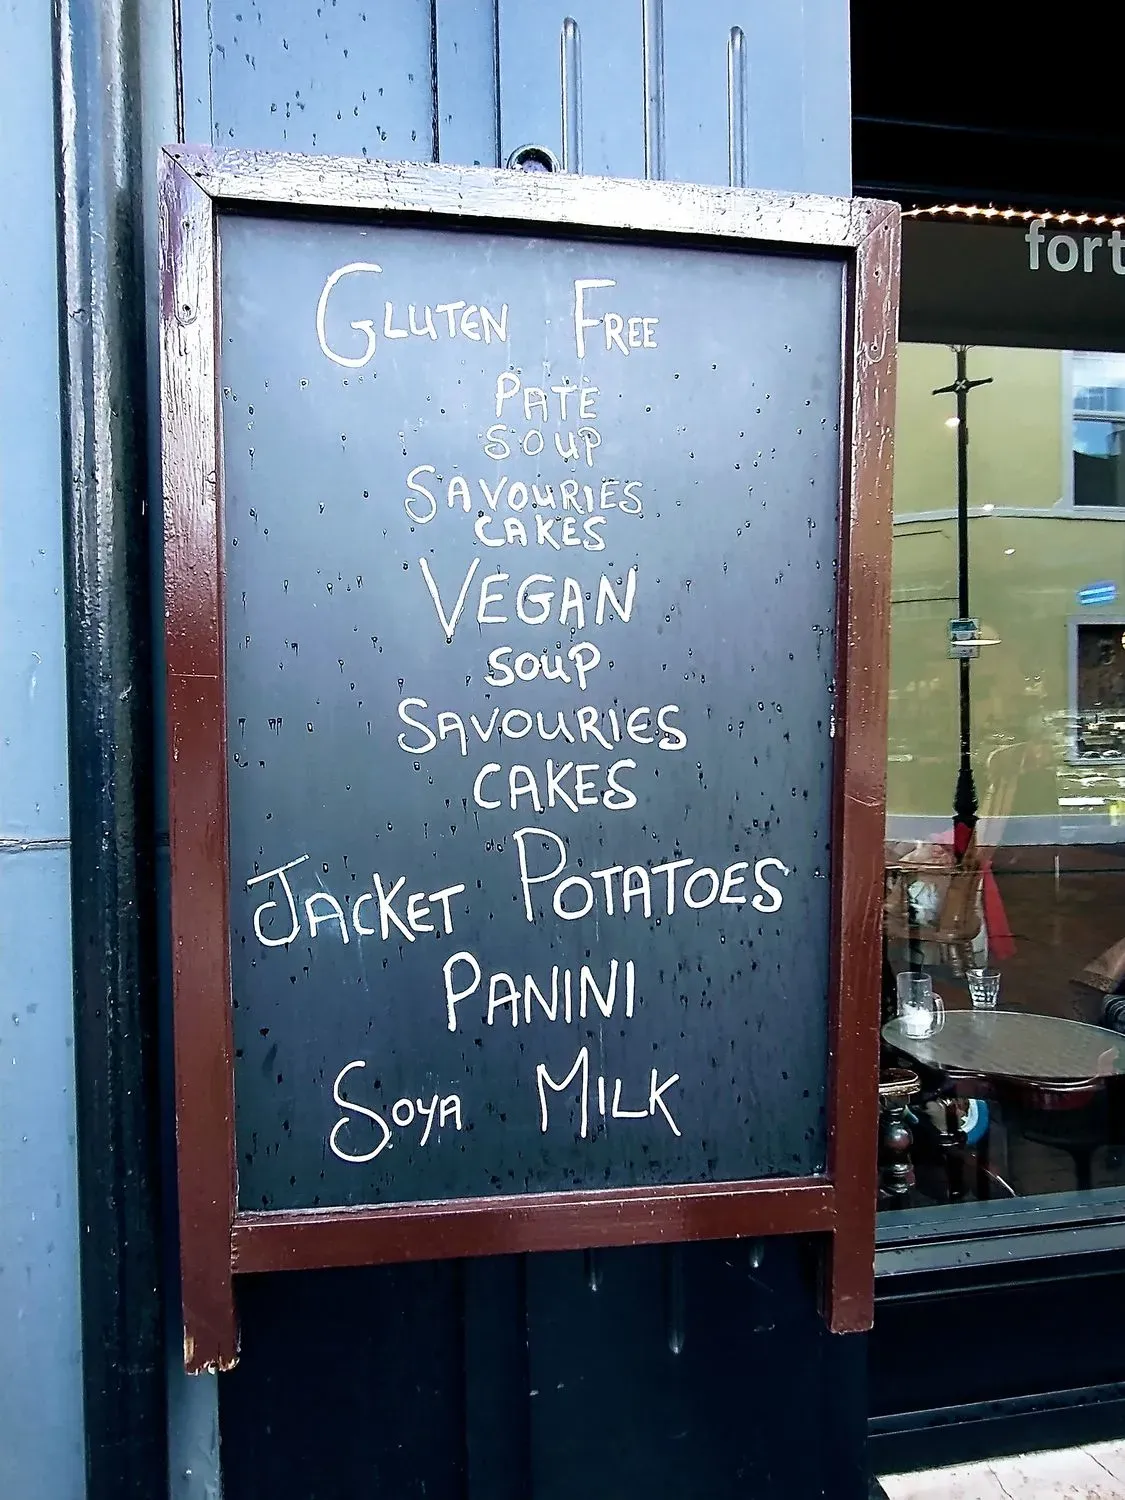 GLUTEN FREE
PATE
SOUP
SAVOURIES
CAKES
VEGAN
SOUP
SAVOURIES
CAKES
JACKET POTATOES
PANINI
SOYA MILK
fort